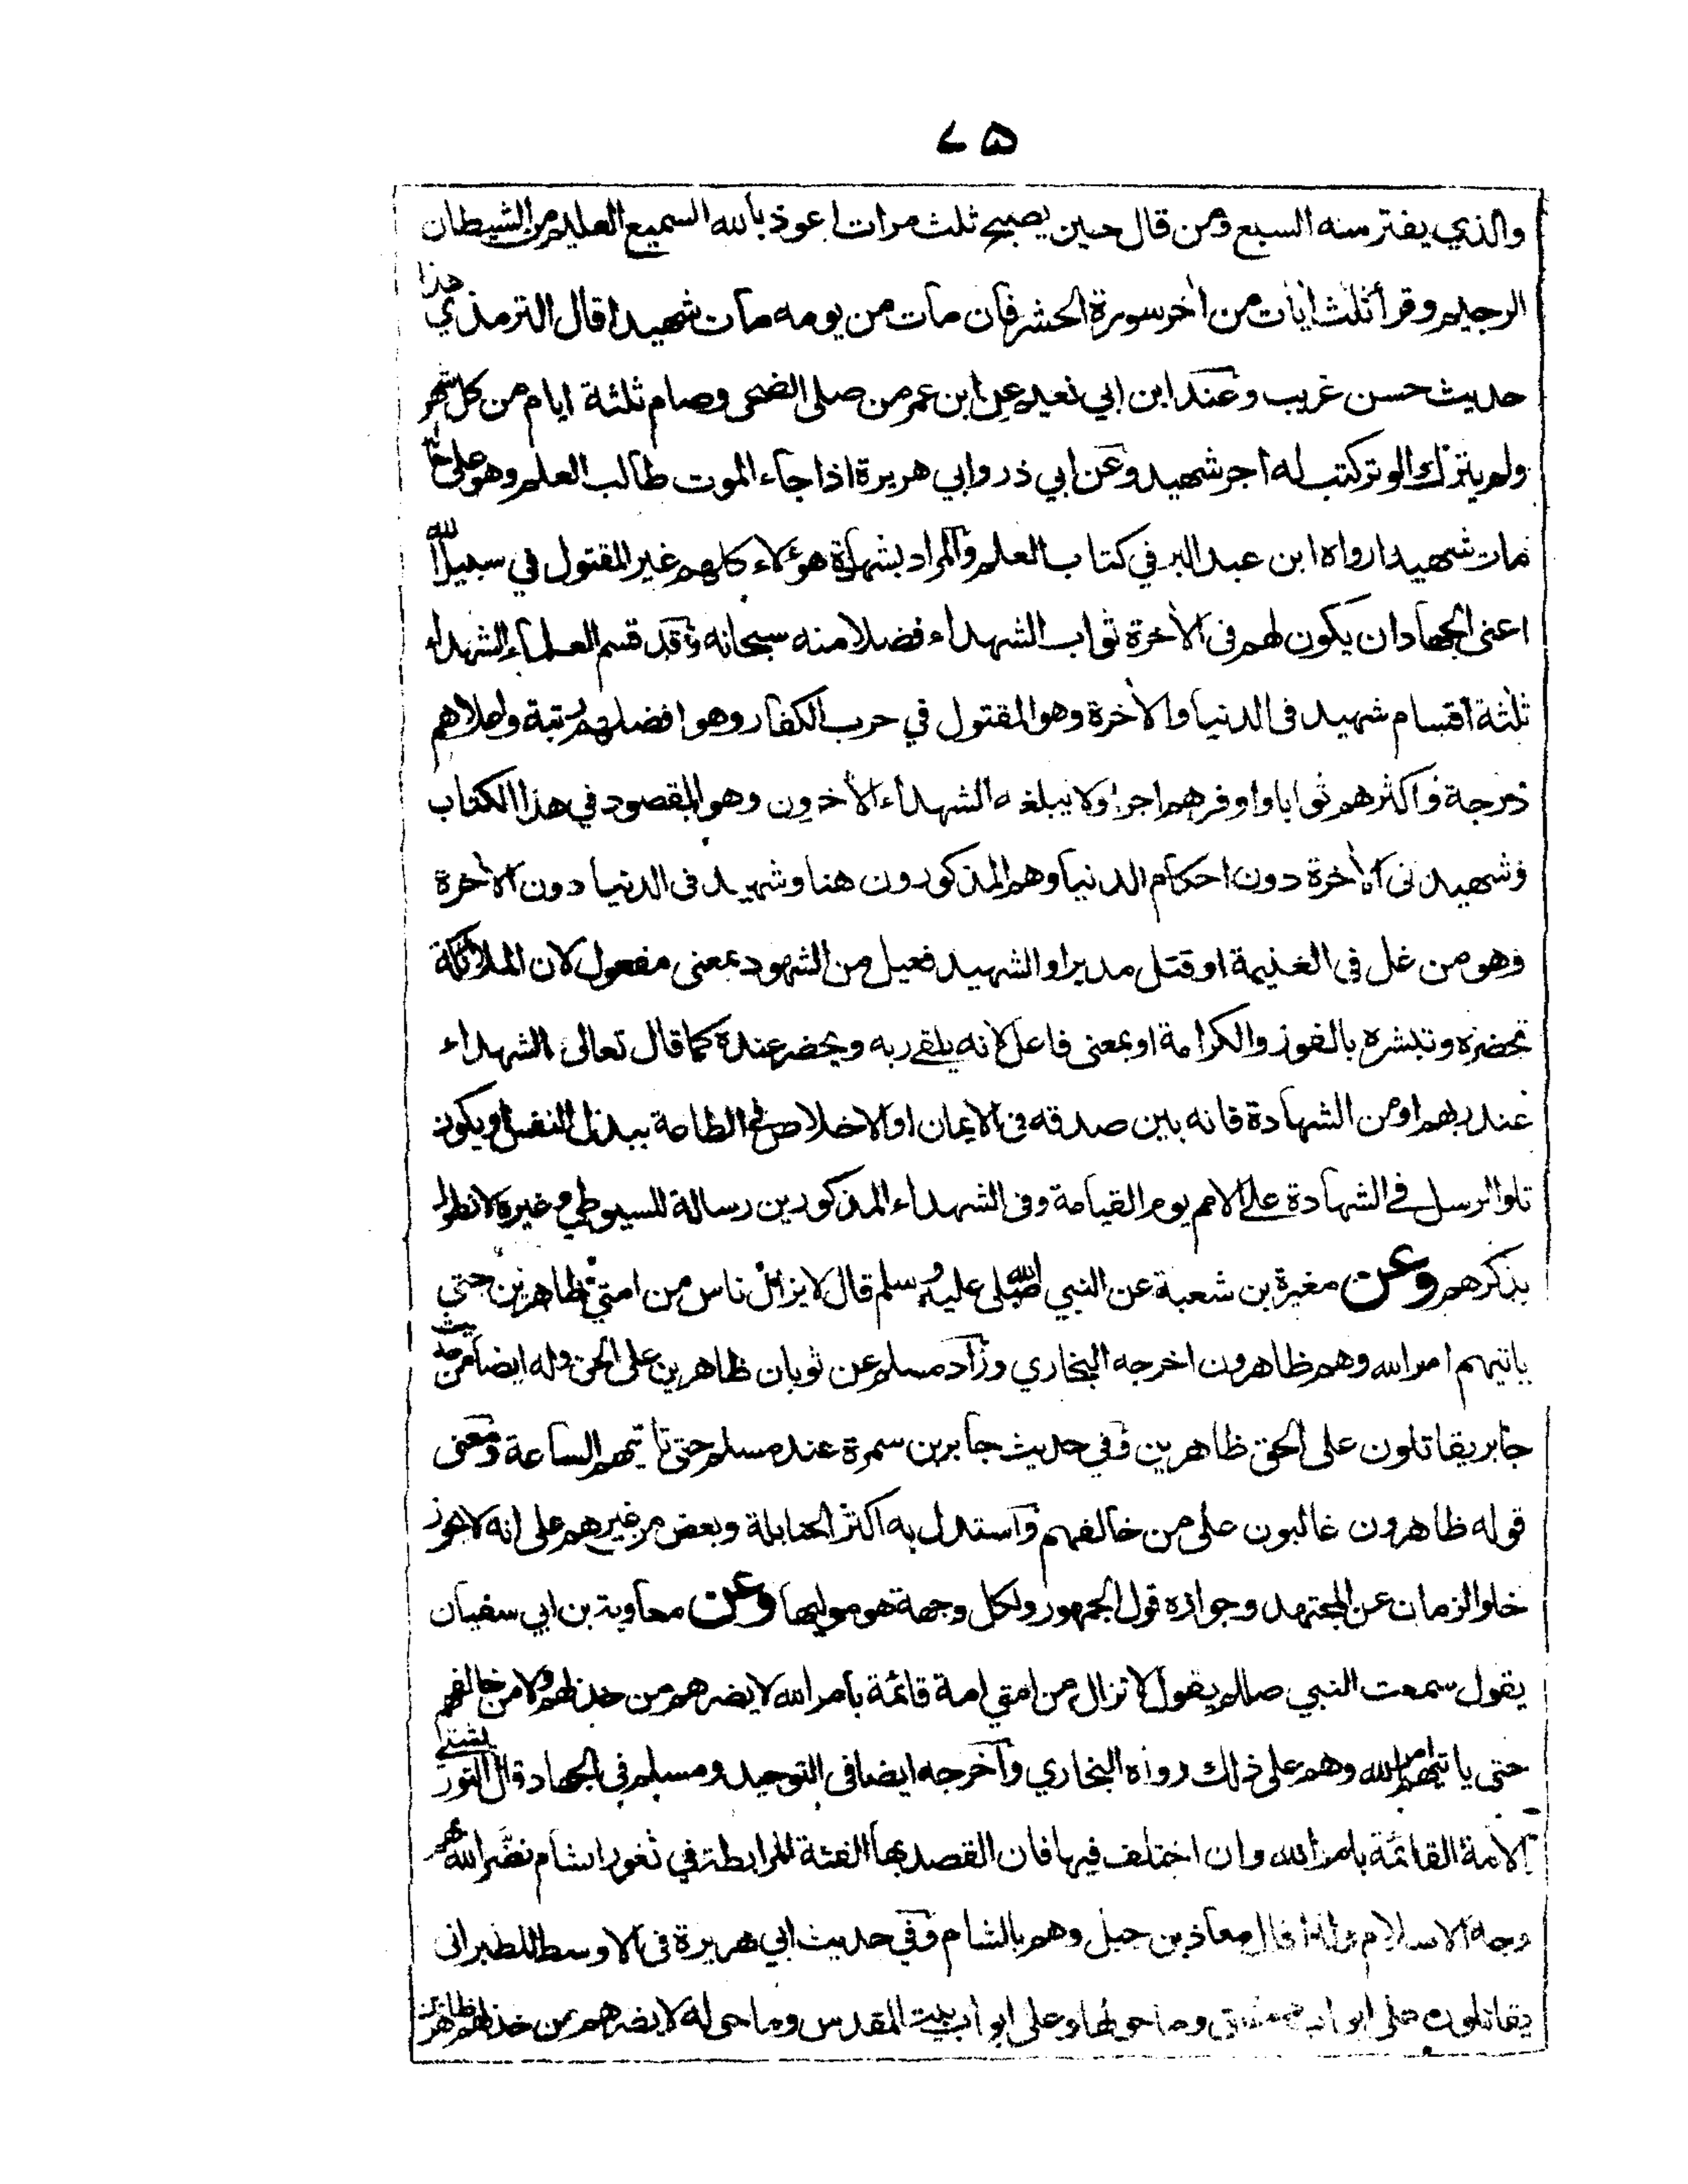 ٧۵
والذي يفترسه السبع ومن قال حين يصبح ثلث مرات اعوذ بالله السميع العليم من الشيطان
الرجيم وقرأ ثلث أيات من أخر سورة الحشر فان مات من يومه مات شهيدا قال الترمذي هذا
حديث حسن غريب وعند ابن ابي نعيم عن ابن عمر من صلى الضحى وصام ثلثة ايام من كل شهر
ولم يترك الوتر كتب له اجر شهيد وعن ابي ذر وابي هريرة اذا جاء الموت طالب العلم وهو على
مات شهيدا رواه ابن عبد البر في كتاب العلم والمراد بشهادة هؤلاء كلهم غير المقتول في سبيل الله
اعنى الجهاد ان يكون لهم فى الأخرة ثواب الشهداء فضلا منه سبحانه وقد قسم العلماء الشهداء
ثلثة اقسام شهيد فى الدنيا والأخرة وهو المقتول في حرب الكفار وهو افضلهم رتبة واعلاهم
درجة واكثرهم ثوابا واوفرهم اجرا ولا يبلغه الشهداء الأخرون وهو المقصود في هذا الكتاب
وشهيد فى الأخرة دون احكام الدنيا وهم المذكورون هنا وشهيد فى الدنيا دون الأخرة
وهو من غل فى الغنيمة او قتل مدبرا والشهيد فعيل من الشهود بمعنى مفعول لان الملائكة
تحضره وتبشره بالفوز والكرامة او بمعنى فاعل لانه يلقى ربه ويحضر عنده كما قال تعالى الشهداء
عند ربهم او من الشهادة فانه بين صدقه فى الايمان والاخلاص فى الطاعة ببذل النفس او يكون
تلو الرسل في الشهادة على الامم يوم القيامة وفى الشهداء المذكورين رسالة للسيوطي وغيره لا نطول
بذكرهم وعن مغيرة بن شعبة عن النبي صلى الله عليه وسلم قال لا يزال ناس من امتي ظاهرين حتى
ياتيهم امر الله وهم ظاهرون اخرجه البخاري وزاد مسلم عن ثوبان ظاهرين على الحق وله ايضا من حديث
جابر يقاتلون على الحق ظاهرين وفي حديث جابر بن سمرة عند مسلم حتى تاتيهم الساعة ومعنى
قوله ظاهرون غالبون على من خالفهم واستدل به اكثر الحنابلة وبعض من غيرهم على انه لا يجوز
خلو الزمان عن المجتهد وجوازه قول الجمهور ولكل وجهة هو موليها وعن معاوية بن ابي سفيان
يقول سمعت النبي صللم يقول لا تزال من امتي امة قائمة بامر الله لا يضرهم من خذلهم ولا من خالفهم
حتى ياتيهم امر الله وهم على ذلك رواه البخاري واخرجه ايضا فى التوحيد ومسلم فى الجهاد قال التوربشتي
الامة القائمة بامر الله وان اختلف فيها فان القصد بها الفئة المرابطة في ثغور الشام نضر الله بهم
وجه الاسلام ولذا قال معاذ بن جبل وهم بالشام وفي حديث ابي هريرة فى الاوسط للطبرانى
يقاتلون على ابواب دمشق وما حولها وعلى ابواب بيت المقدس وما حوله لا يضرهم من خذلهم ظاهرين